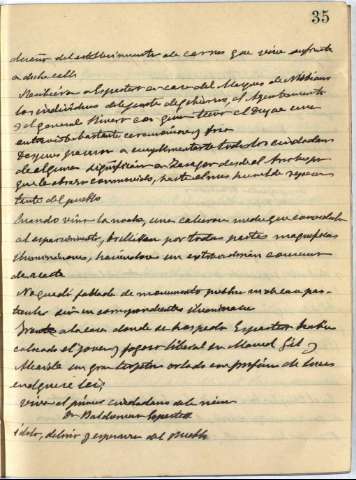 35
dueño del establecimiento de carnes que vive enfrente
a dicha calle
Espartero a casa del Marques de
los individuos del de gobierno, el Ayuntamiento
y el general Rivero con quien tuvo el Duque una
entrevista bastante ceremoniosa y fria
Despues pasaron a cumplimentarle todos los ciudadanos
de alguna significacion en Zaragoza desde el Arzobispo
que le abrazo conmovido, hasta el mas humilde represen
tante del pueblo
Cuando vino la noche, una calurosa noche que convidaba
al esparcimiento, brillaban por todas partes magnificas
iluminaciones, haciendose un extraordinario consumo
de aceite
No quedó fachada de monumento publico ni de casa par
ticular sin su correspondiente iluminacion
Frente a la casa donde se hospedo Espartero habia
colocado el joven y fogoso liberal Manuel Gil y
Alcaide un gran orlado con profusion de luces
en el que se leia;
Viva el primer ciudadano de la
Dn Baldomero Espartero
idolo, delirio y esperanza del Pueblo